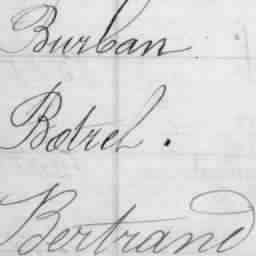 Burban
Botrel.
Bertrand